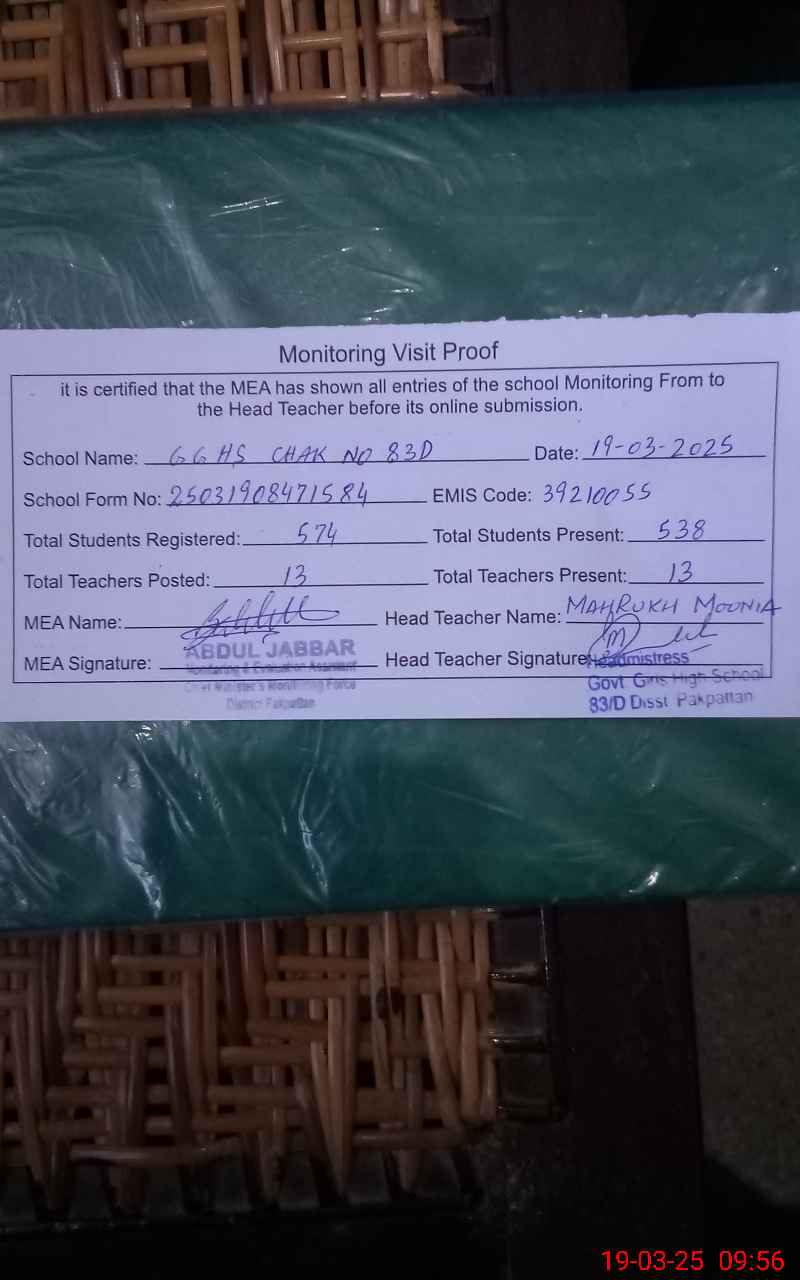 Monitoring Visit Proof
it is certified that the MEA has shown all entries of the school Monitoring From to
the Head Teacher before its online submission.
School Name: GGHS CHAK NO 83D Date: 19-03-2025
School Form No: 25031908471584 EMIS Code: 39210055
Total Students Registered: 574 Total Students Present: 538
Total Teachers Posted: 13 Total Teachers Present: 13
MEA Name: Head Teacher Name: MAHRUKH MOONIA
ABDUL JABBAR
MEA Signature: Head Teacher Signature
Monitoring & Evaluation Assistant
Chief Minister's Monitoring Force
District Pakpattan
Headmistress
Govt Girls High School
83/D Disst Pakpattan
19-03-25 09:56